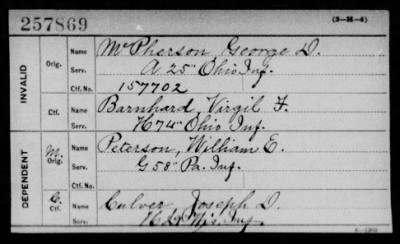 257869 (3-H-4)
INVALID
Orig. Name McPherson George D.
Serv. A 25" Ohio Inf.
Ctf. No. 157702
Ctf. Name Barnhard, Virgil F.
Serv. H 74" Ohio Inf.
DEPENDENT
M. Orig. Name Peterson, William E.
Serv. G 58" Pa. Inf.
C. Ctf. Name Culver, Joseph D.
Serv. Inf.